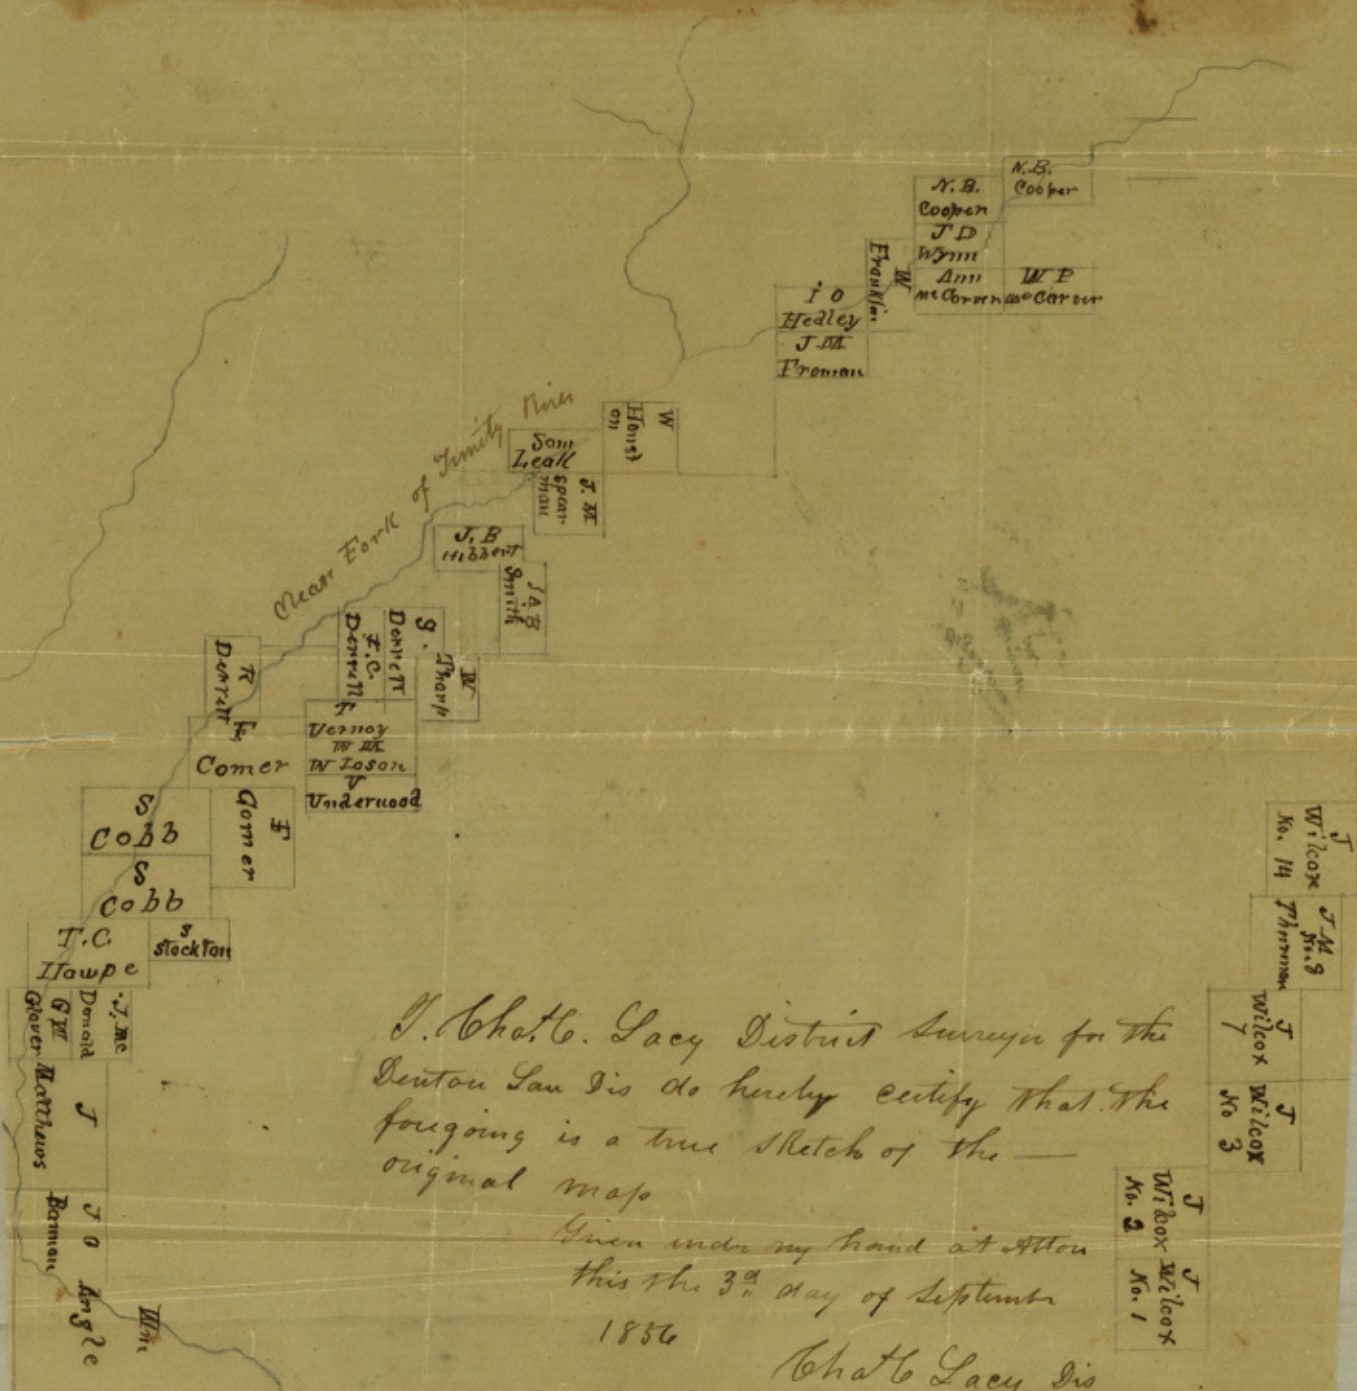 N.B.
Cooper
N.B.
Cooper
J D
Wynn
Ann
McCarver
W P
McCarver
W
Franklin
I O
Hedley
J M
Froman
W
Houst
on
Sam
Leall
J. M
Spear
man
Clear Fork of Trinity River
J. B
Hibbert
J A B
Smith
S.
Derrett
E. C.
Derrett
W
Tharp
R
Derrett
T
Vernoy
W M
Wloson
V
Underwood
F
Comer
F
Gomer
S
Cobb
S
Cobb
T. C.
Hawpe
S
Stockton
J. Mc
Donald
G W
Glover
J
Matthews
J O
Banman
Wm
Angle
J
Wilcox
No. 14
J M
No. 9
Thurman
J
Wilcox
7
J
Wilcox
No 3
J
Wilcox
No. 2
J
Wilcox
No. 1
I. Chas. C. Lacy District Surveyor for the
Denton Lan Dis do hereby certify that the
foregoing is a true sketch of the —
original map
Given under my hand at Alton
this the 3d day of September
1856
Chas C Lacy Dis